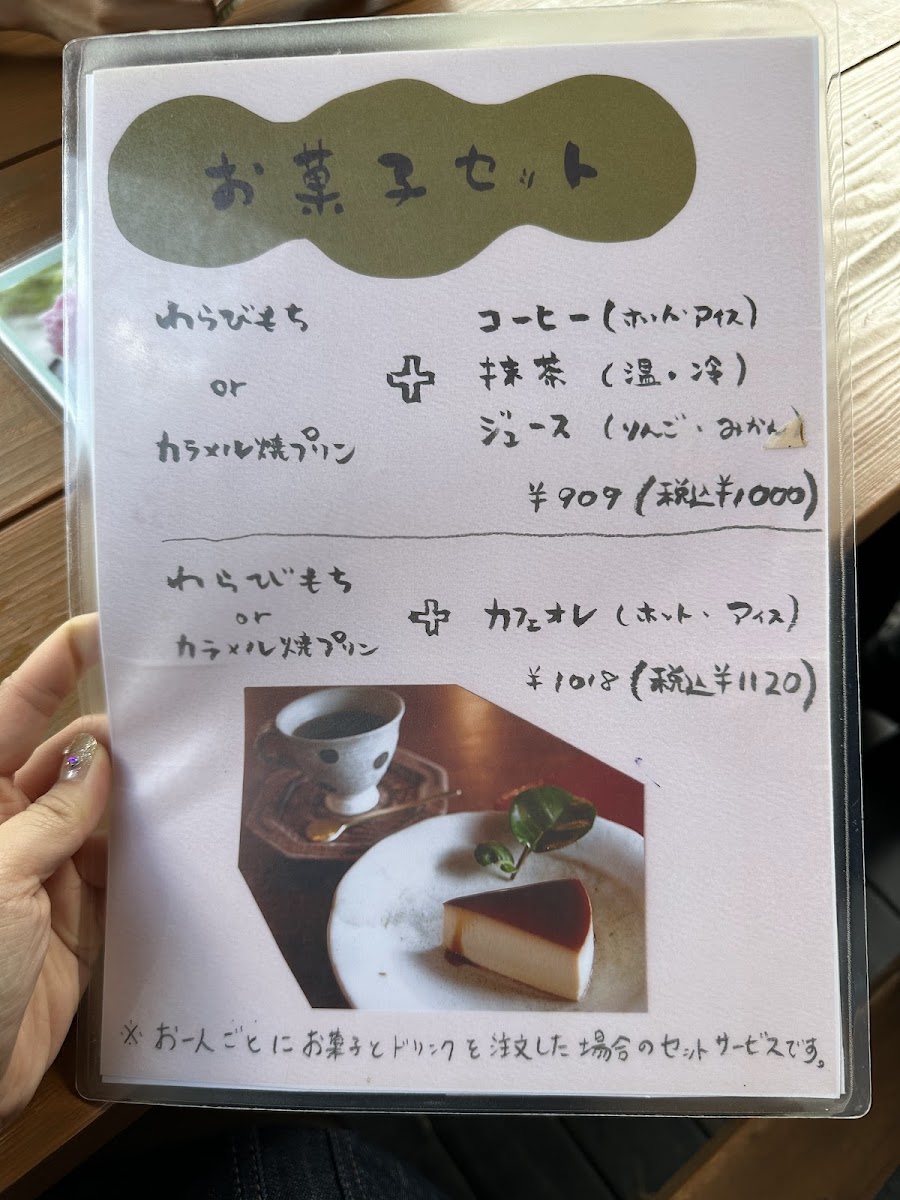 お菓子セット
わらびもち
or
カラメル焼プリン
+
コーヒー(ホット・アイス)
抹茶 (温・冷)
ジュース (りんご・みかん)
¥909 (税込¥1000)
わらびもち
or
カラメル焼プリン
+
カフェオレ (ホット・アイス)
¥1018 (税込¥1120)
※ お一人ごとにお菓子とドリンクを注文した場合のセットサービスです。